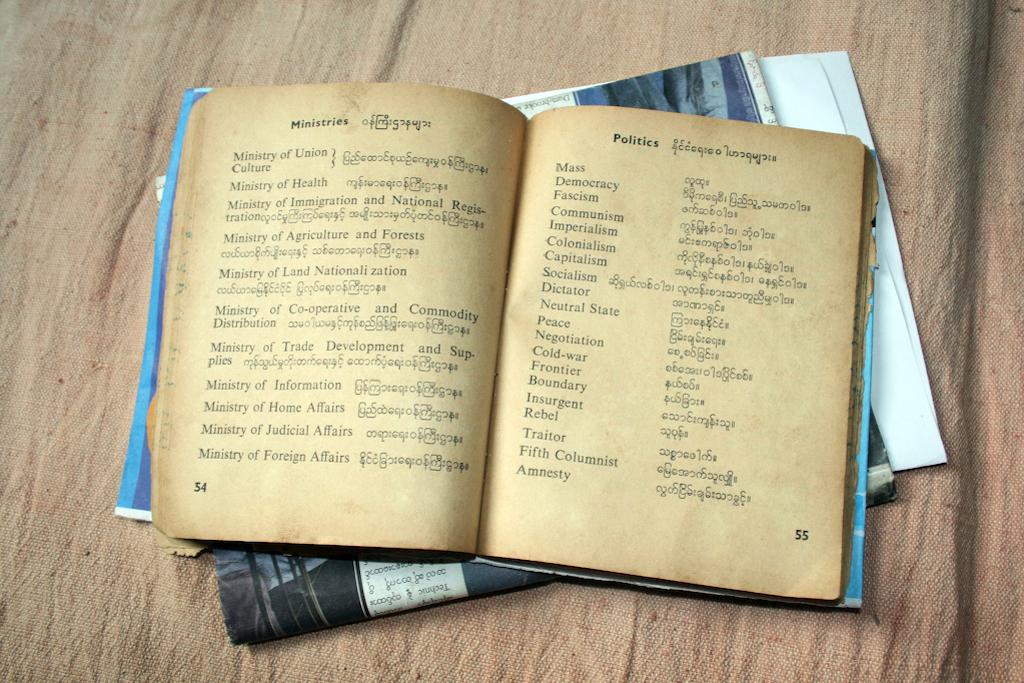 Ministries ဝန်ကြီးဌာနများ
Ministry of Union } ပြည်ထောင်စုယဉ်ကျေးမှုဝန်ကြီးဌာန၊
Culture
Ministry of Health ကျန်းမာရေးဝန်ကြီးဌာန။
Ministry of Immigration and National Regis-
trationလူဝင်မှုကြီးကြပ်ရေးနှင့် အမျိုးသားမှတ်ပုံတင်ဝန်ကြီးဌာန။
Ministry of Agriculture and Forests
လယ်ယာစိုက်ပျိုးရေးနှင့် သစ်တောရေးဝန်ကြီးဌာန။
Ministry of Land Nationali zation
လယ်ယာမြေနိုင်ငံပိုင် ပြုလုပ်ရေးဝန်ကြီးဌာန။
Ministry of Co-operative and Commodity
Distribution သမဝါယမနှင့်ကုန်စည်ဖြန့်ဖြူးရေးဝန်ကြီးဌာန။
Ministry of Trade Development and Sup-
plies ကုန်သွယ်မှုတိုးတက်ရေးနှင့် ထောက်ပံ့ရေးဝန်ကြီးဌာန။
Ministry of Information ပြန်ကြားရေးဝန်ကြီးဌာန။
Ministry of Home Affairs ပြည်ထဲရေးဝန်ကြီးဌာန။
Ministry of Judicial Affairs တရားရေးဝန်ကြီးဌာန။
Ministry of Foreign Affairs နိုင်ငံခြားရေးဝန်ကြီးဌာန။
54
Politics နိုင်ငံရေးဝေါဟာရများ။
Mass လူထု။
Democracy ဒီမိုကရေစီ၊ ပြည်သူ့သမတဝါဒ။
Fascism ဖက်ဆစ်ဝါဒ။
Communism ကွန်မြူနစ်ဝါဒ၊ ဘုံဝါဒ။
Imperialism မင်းဧကရာဇ်ဝါဒ။
Colonialism ကိုလိုနီစနစ်ဝါဒ၊ နယ်ချဲ့ဝါဒ။
Capitalism အရင်းရှင်စနစ်ဝါဒ၊ ဓနရှင်ဝါဒ။
Socialism ဆိုရှယ်လစ်ဝါဒ၊ လူတန်းစားသာတူညီမျှဝါဒ။
Dictator အာဏာရှင်။
Neutral State ကြားနေနိုင်ငံ။
Peace ငြိမ်းချမ်းရေး။
Negotiation စေ့စပ်ခြင်း။
Cold-war စစ်အေး၊ ဝါဒပြိုင်စစ်။
Frontier နယ်စပ်။
Boundary နယ်ခြား။
Insurgent သောင်းကျန်းသူ။
Rebel သူပုန်။
Traitor သစ္စာဖောက်။
Fifth Columnist မြေအောက်သူလျှို။
Amnesty လွတ်ငြိမ်းချမ်းသာခွင့်။
55